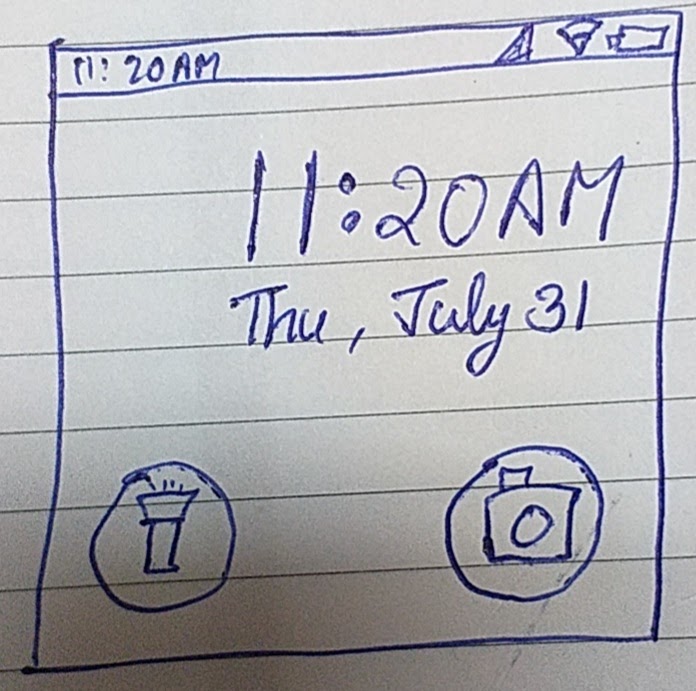 11:20AM
11:20AM
Thu, July 31